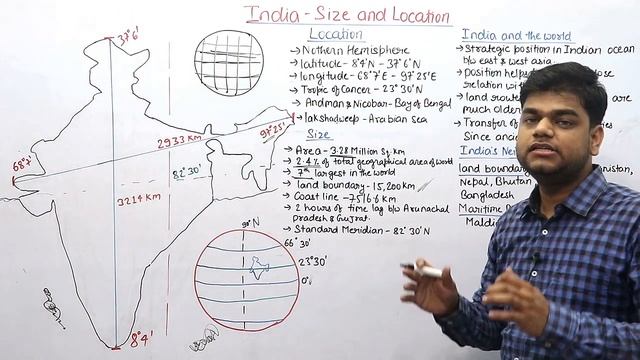 India - Size and Location
Location
→ Nothern Hemisphere
→ latitude - 8°4'N - 37°6'N
→ longitude - 68°7'E - 97°25'E
→ Tropic of Cancer - 23°30'N
→ Andman & Nicobar - Bay of Bengal
→ lakshadweep - Arabian Sea
Size
→ Area - 3.28 Million Sq. Km
→ 2.4% of total geographical area of world
→ 7th largest in the world
→ land boundary - 15,200 km
→ Coast line - 7516.6 km
→ 2 hours of time lag b/w Arunachal
Pradesh & Gujrat.
→ Standard Meridian - 82°30'N
India and the world
→ Strategic position in Indian ocean
b/w east & west asia.
→ Position
relation
→ land
are
much older
→ Transfer
Since
India's
land boundary
Nepal, Bhutan
Bangladesh
Maritime
37°6'
2933 Km
97°25'
68°7'
82°30'
3214 Km
8°4'
90° N
66°30'
23°30'
0°